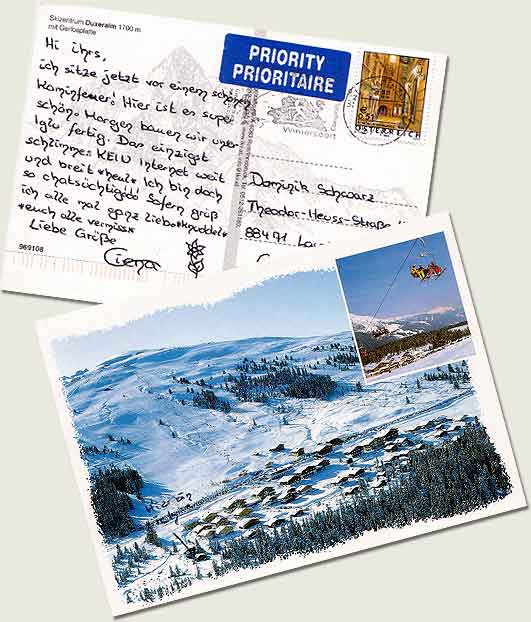 Skizentrum Duxeralm 1700 m
mit Gerlosplatte
Hi ihrs,
ich sitze jetzt vor einem schönen
Kaminfeuer! Hier ist es super
schön. Morgen bauen wir unser
Iglu fertig. Das einzigst
schlimme: KEIN Internet weit
und breit *heul* Ich bin doch
so chatsüchtig! Sofern grüß
ich alle mal ganz liebe *knuddel*
*euch alle vermiss*
Liebe Grüße
Ciena
969108
PRIORITY
PRIORITAIRE
Wintersport
ÖSTERREICH
Dominik Schwarz
Theodor-Heuss-Straße
88471